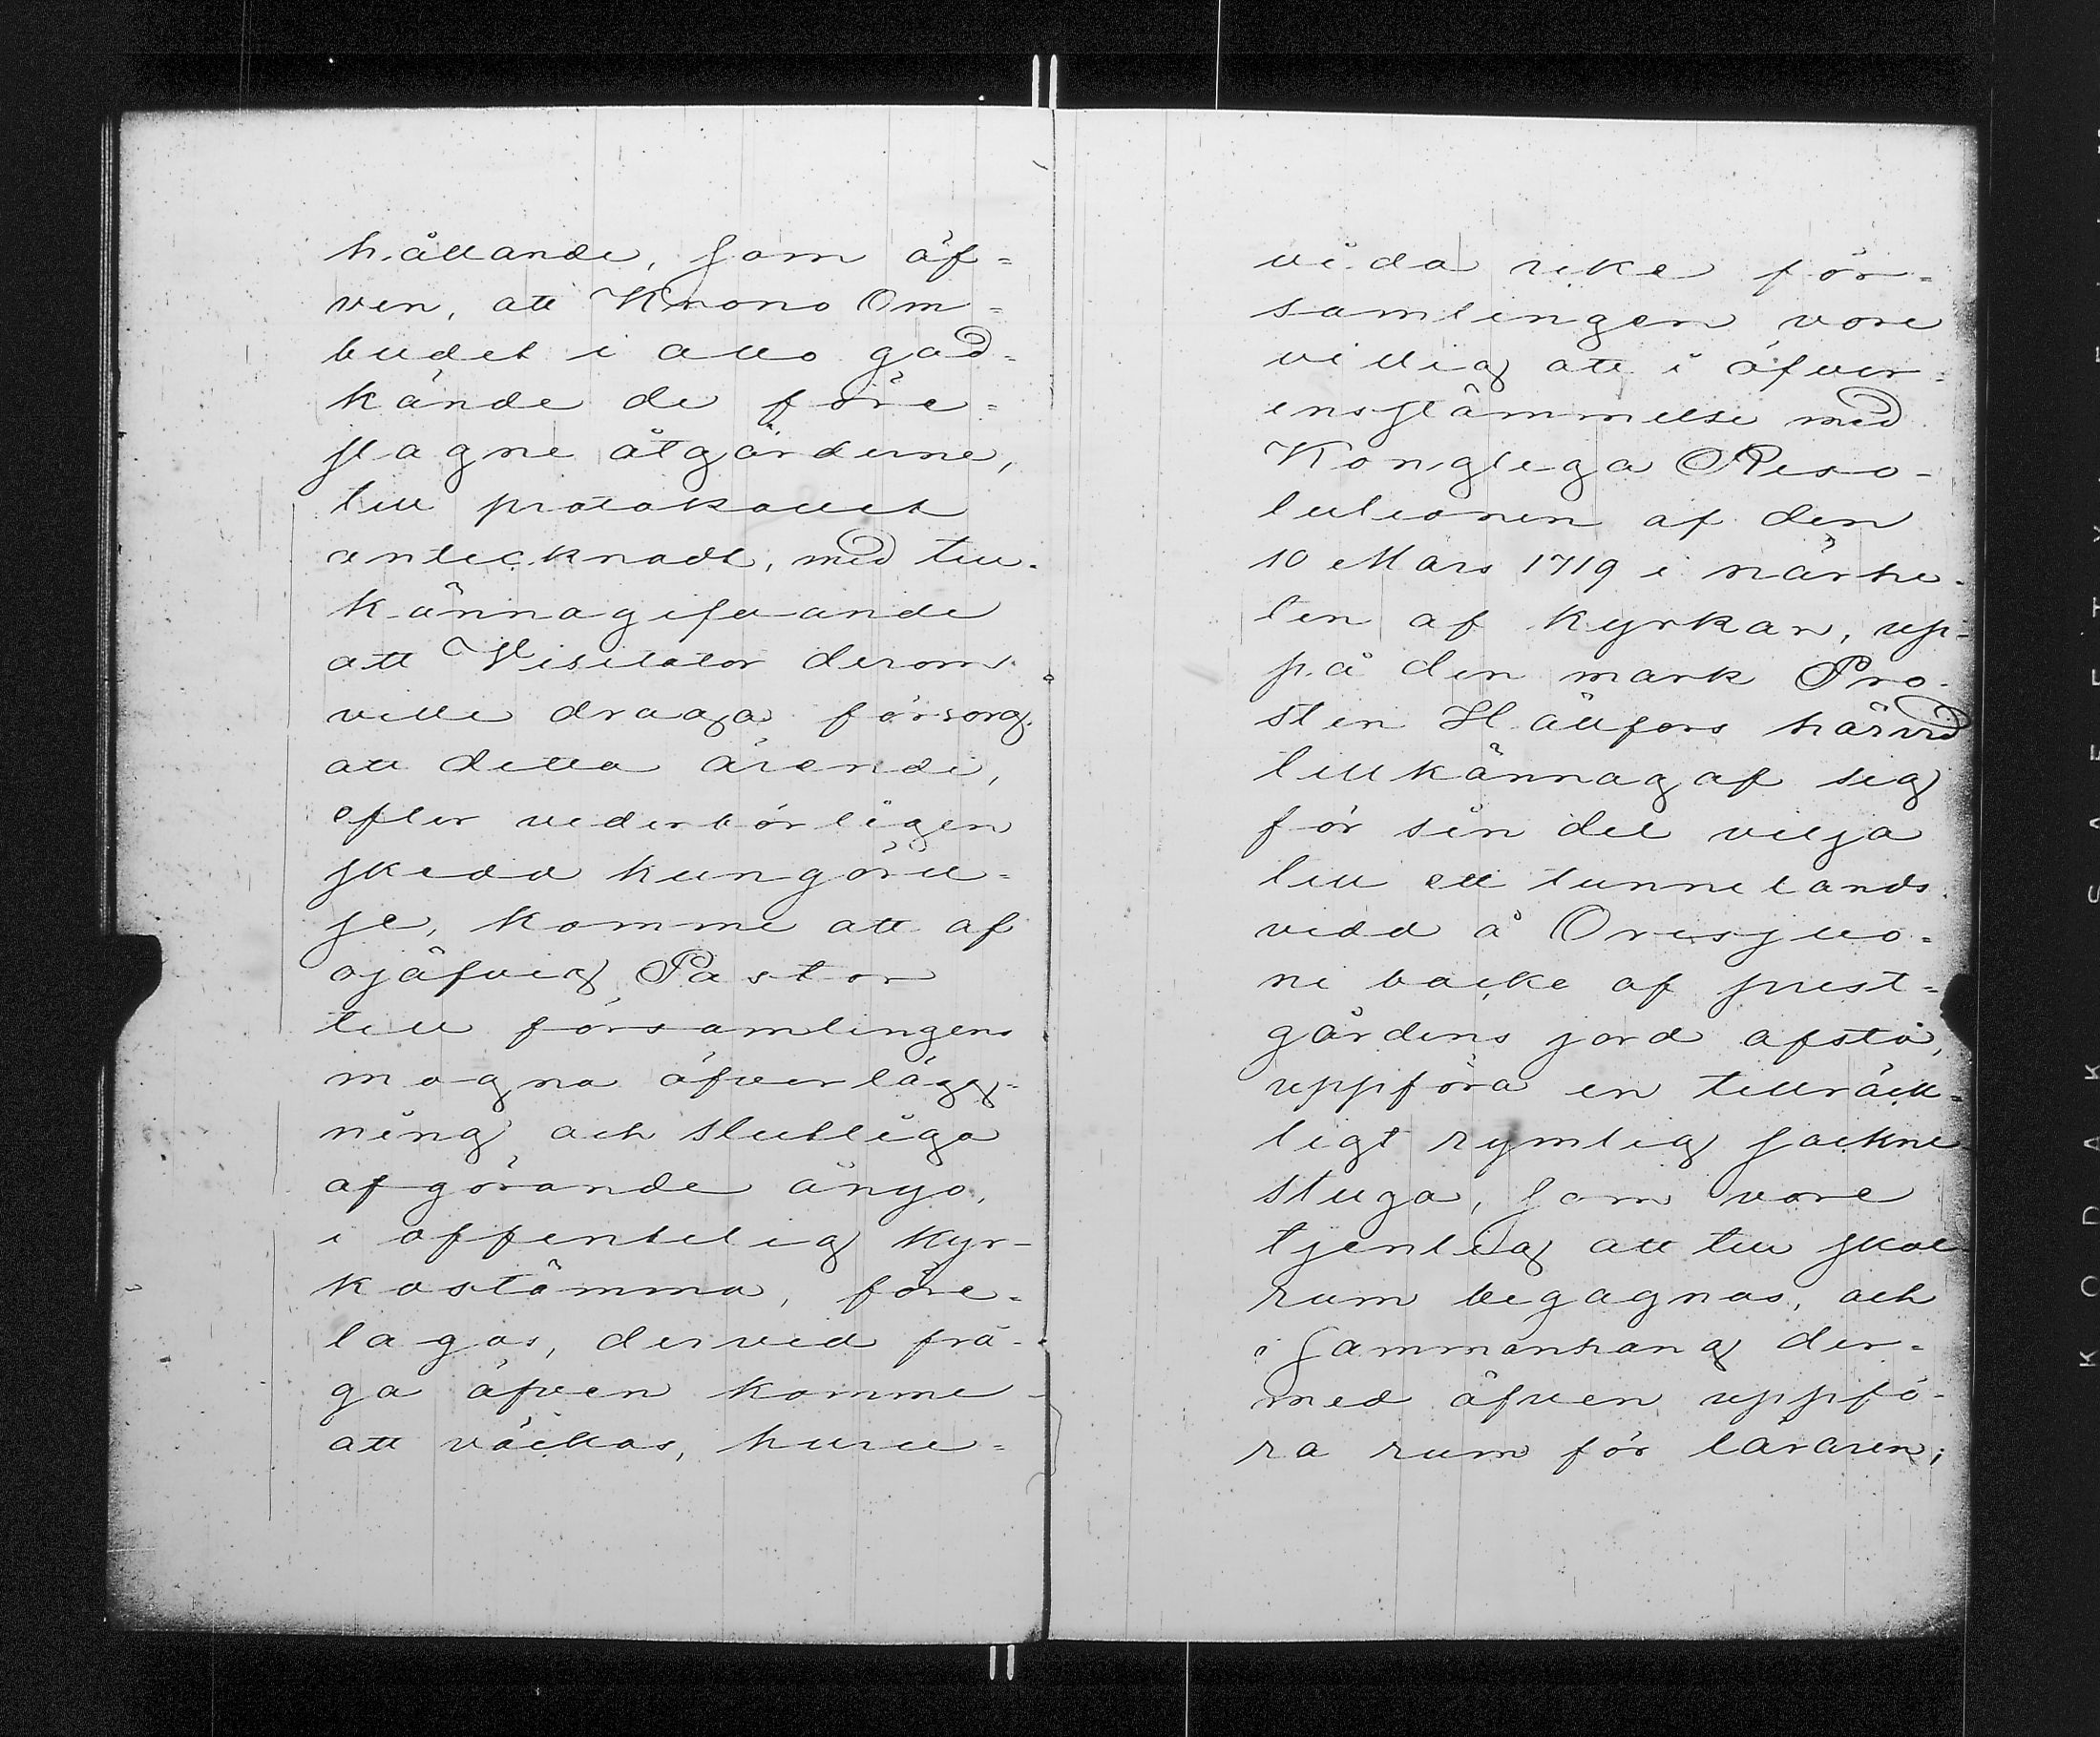 hållande, som äf=
ven, att Krono Om=
budet i allo god=
kände de före=
slagne åtgärderne,
till protokollet
antecknadt, med till-
kännagifvande
att Visitator derom
ville draga försorg
att detta ärende,
efter vederbörligen
skedd kungörel=
se, komme att af
ojäfvig Pastor
till församlingens
mogna öfverlägg=
ning och slutliga
afgörande ånyo,
i offentelig Kyr-
kostämma, före-
tagas, dervid frå-
ga äfven komme
att väckas, huru=
vida icke för=
samlingen vore
villig att i öfver=
ensstämmelse med
Kongliga Reso-
lutionen af den
10 Mars 1719 i närhe-
ten af Kyrkan, up-
på den mark Pro-
sten Hällfors härvid
tillkännagaf sig
för sin del vilja
till ett tunnelands
vidd å Orisjuo=
ni backe af prest=
gårdens jord afstå,
uppföra en tillräck=
ligt rymlig sockne
stuga, som vore
tjenlig att till skol
rum begagnas, och
i sammanhang der=
med äfven uppfö-
ra rum för läraren;
KODAK SAFETY FILM